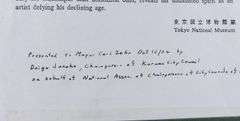 artist defying his declining age.
東京国立博物館蔵
Tokyo National Museum
Presented to Mayor Carl Zeitz Oct 10/92 by
Chairperson of Kurume City Council
on behalf of National Assn. of Chairpersons of City Councils of